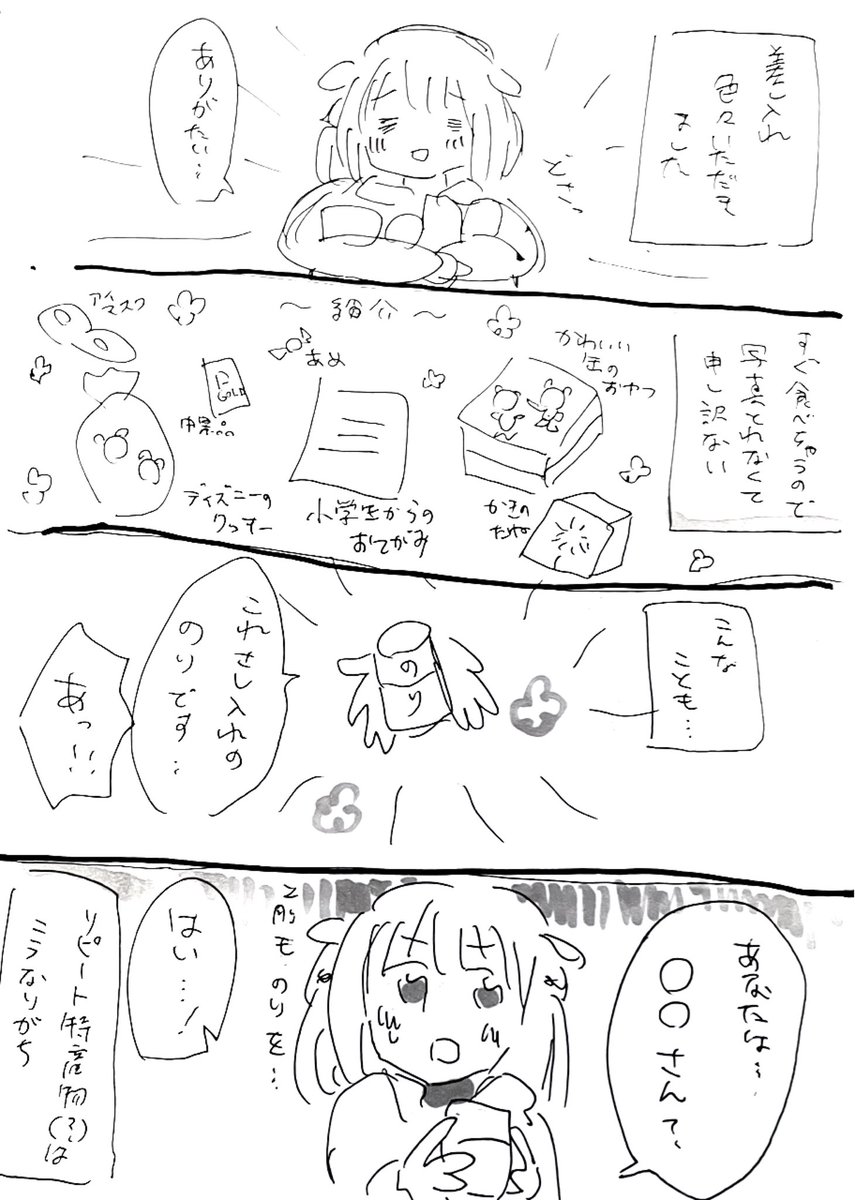 差し入れ
色々いただき
ました
どさっ
ありがたい…
すぐ食べちゃうので
写真とれなくて
申し訳ない
～紹介～
かわいい
缶の
おやつ
かきの
たね
あめ
小学生からの
おてがみ
GOLD
ディズニーの
クッキー
アイマスク
こんな
ことも…
のり
これさし入れの
のりです…
あっ!!
あなたは…
〇〇さんで、
前も のりを…
はい…!
リピート特産物(?)は
こうなりがち